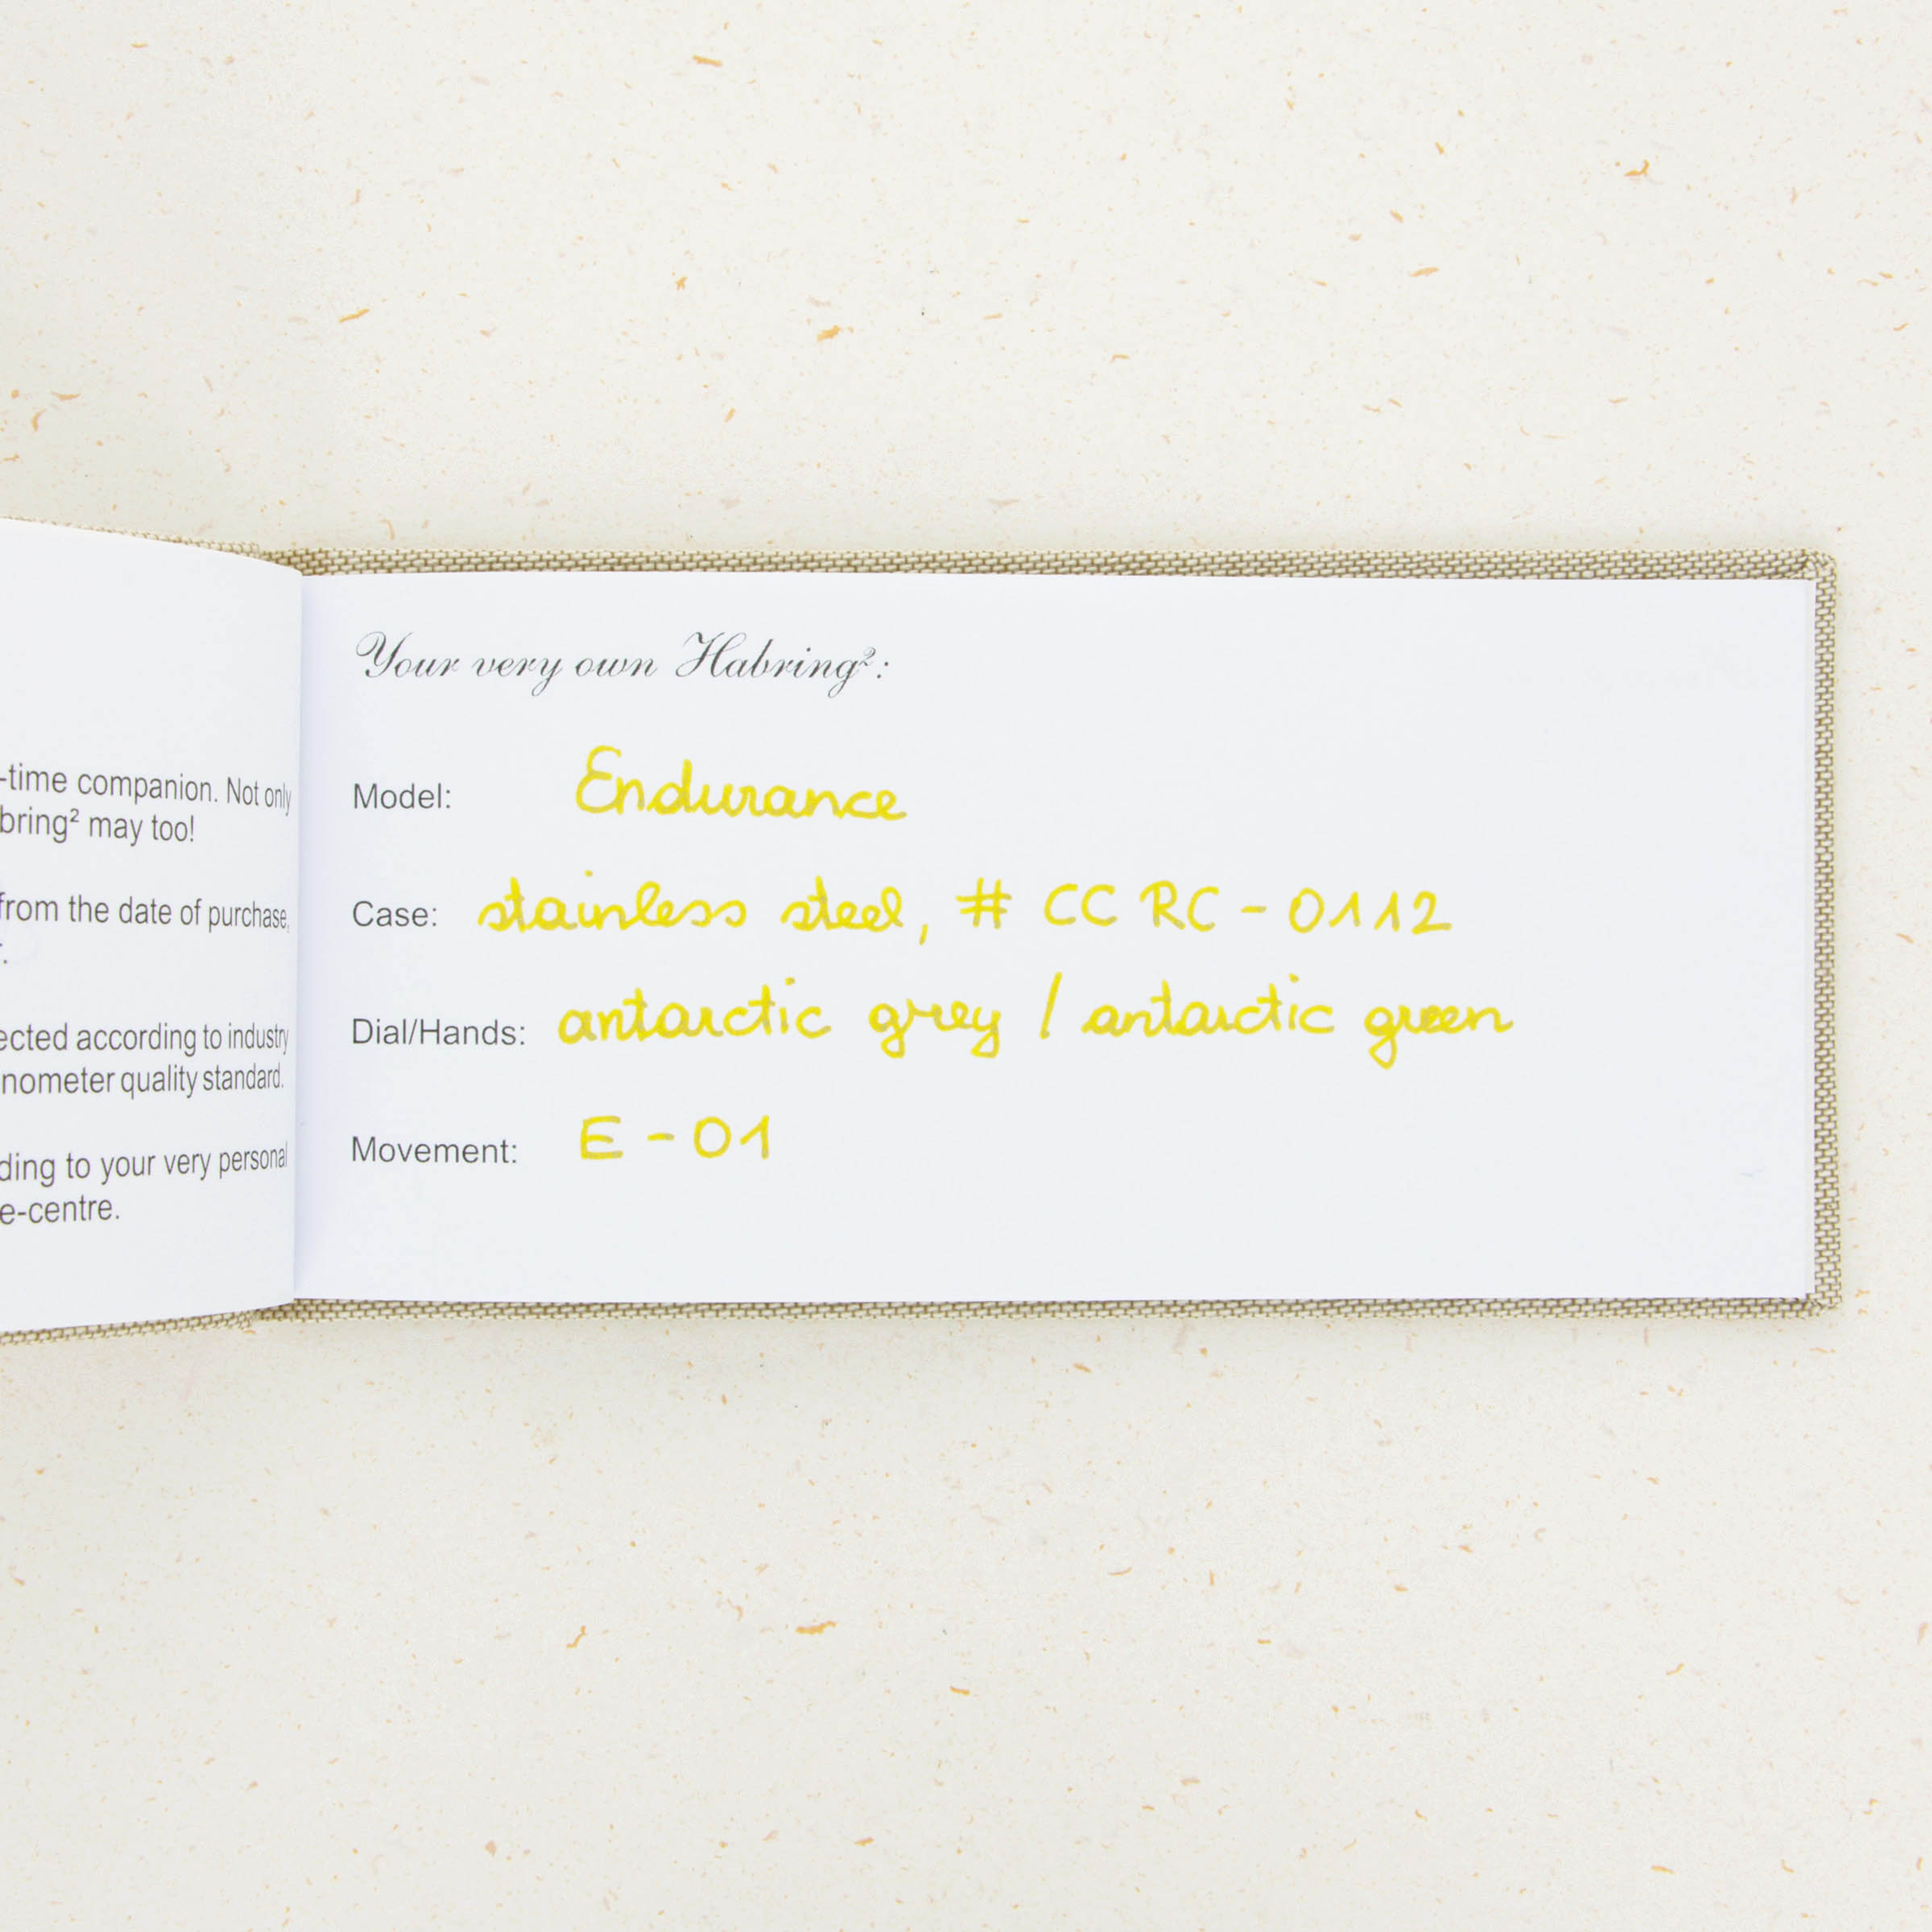 -time companion. Not only
bring² may too!
from the date of purchase,
ected according to industry
nometer quality standard.
ding to your very personal
e-centre.
Your very own Habring²:
Model: Endurance
Case: stainless steel, # CC RC - 0112
Dial/Hands: antarctic grey / antarctic green
Movement: E - 01